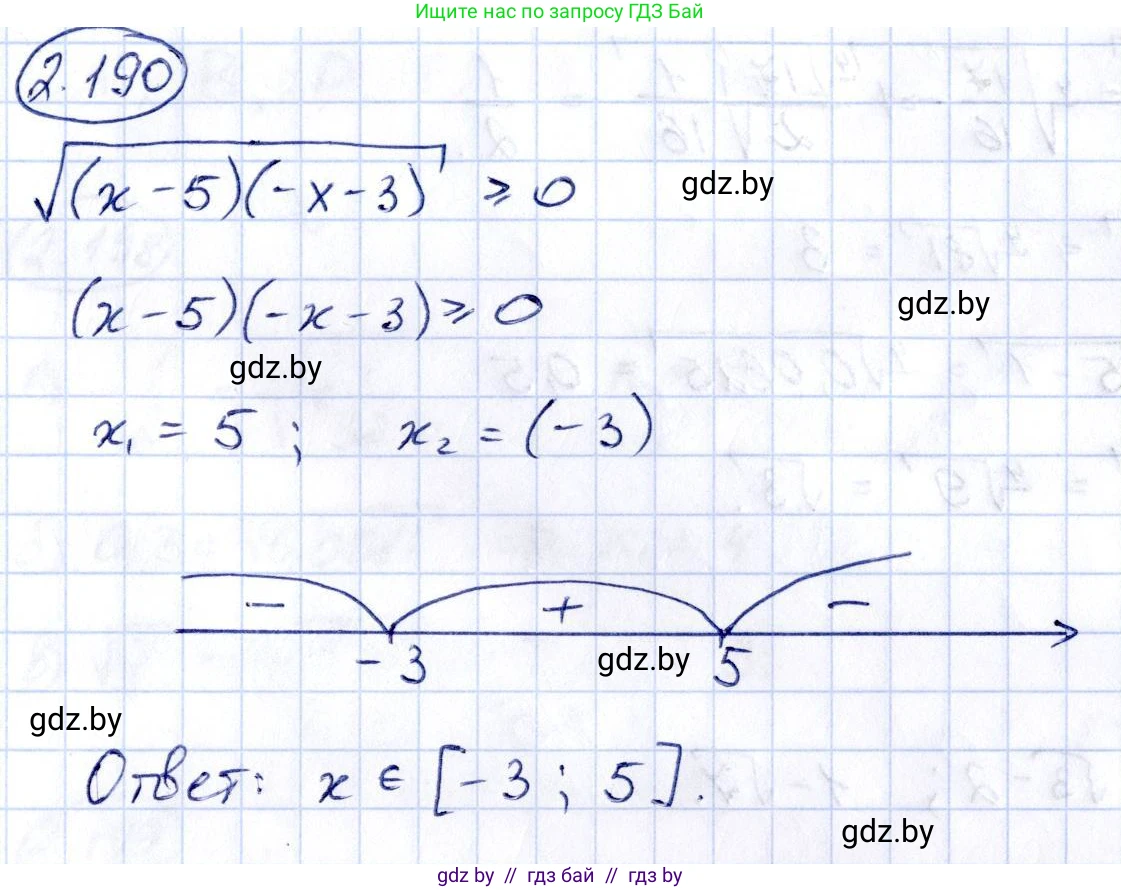 Ищите нас по запросу ГДЗ Бай
2.190
√(x-5)(-x-3) ≥ 0
gdz.by
(x-5)(-x-3) ≥ 0
gdz.by
gdz.by
x₁ = 5 ; x₂ = (-3)
− + −
-3 5
gdz.by
gdz.by
Ответ: x ∈ [-3 ; 5].
gdz.by
gdz.by // гдз бай // гдз by